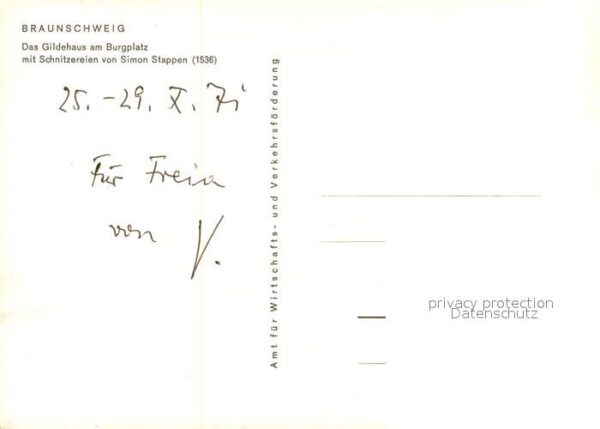 BRAUNSCHWEIG
Das Gildehaus am Burgplatz
mit Schnitzereien von Simon Stappen (1536)
25.-29. X. 71
Für Freia
von V.
Amt für Wirtschafts- und Verkehrsförderung
privacy protection
Datenschutz